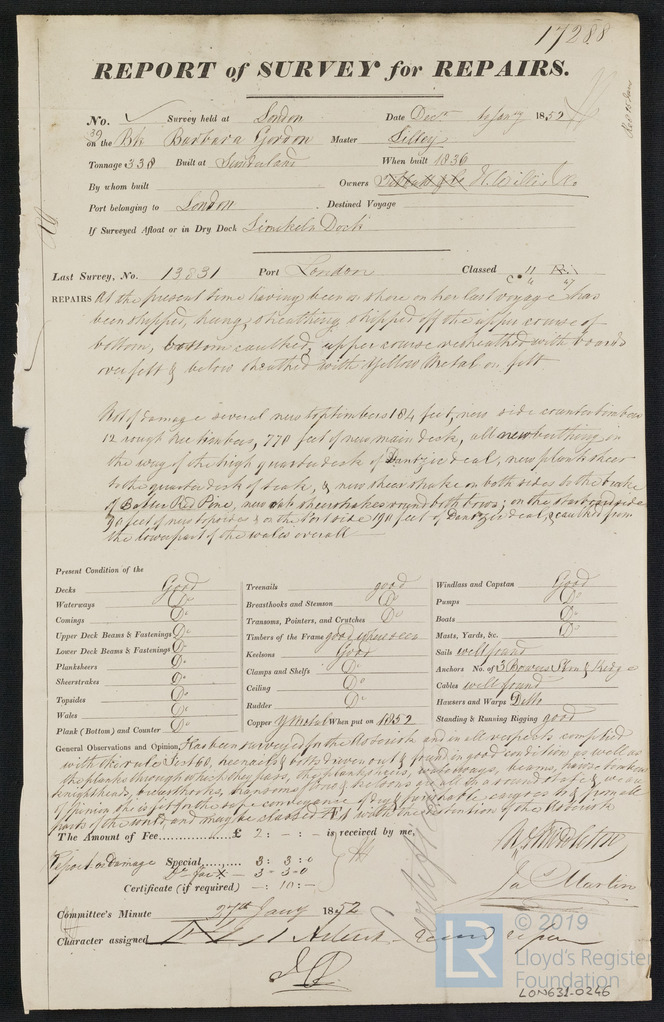 17288
REPORT of SURVEY for REPAIRS.
No. Survey held at London Date Decr to Jany 1852
39 on the Bk Barbara Gordon Master Lilley
Tonnage 338 Built at Sunderland When built 1836
By whom built Owners H. Willis & Co.
Port belonging to London Destined Voyage
If Surveyed Afloat or in Dry Dock Limekiln Dock
Last Survey, No. 13831 Port London Classed
REPAIRS At the present time having been on shore on her last voyage has
been stripped, hung, sheathing stripped off the upper course of
bottom, bottom caulked, upper course resheathed with boards
over felt & below sheathed with Yellow Metal on felt
Rept of damage several new toptimbers 184 feet, new side counter timbers
12 rough tree timbers, 770 feet of new main deck, all new berthing in
the way of the high quarter deck of Dantzic deal, new plank sheer
to the quarter deck of teak, & new sheerstrake on both sides to the brake
of Better Red Pine, new oak sheerstrakes round both bows; on the starboard side
90 feet of new topsides & on the Port side 190 feet of Dantzic deal, & caulked from
the lower part of the wales overall
Present Condition of the
Decks Good
Waterways Do
Comings Do
Upper Deck Beams & Fastenings Do
Lower Deck Beams & Fastenings Do
Planksheers Do
Sheerstrakes Do
Topsides Do
Wales Do
Plank (Bottom) and Counter Do
Treenails good
Breasthooks and Stemson Do
Transoms, Pointers, and Crutches Do
Timbers of the Frame good where seen
Keelsons Good
Clamps and Shelfs Do
Ceiling Do
Rudder Do
Copper Y Metal When put on 1852
Windlass and Capstan Good
Pumps Do
Boats Do
Masts, Yards, &c. Do
Sails well found
Anchors No. of 3 Bowers Strm & Kedge
Cables well found
Hausers and Warps Ditto
Standing & Running Rigging good
General Observations and Opinion, Has been surveyed for the Restorish and in all respects complied
with the rule Sect 60, treenails & bolts driven out & found in good condition as well as
the planks through which they pass, the planksheers, waterways, beams, hawse timbers
knightheads, breasthooks, transoms & keelsons are all in sound state & we are
of opinion she is fit for the safe conveyance of dry & perishable cargoes to & from all
parts of the world, and may be classed A1 with the intention of the Restorish
The Amount of Fee £ 2 : - : - is received by me,
Report on Damage Special 3 : 3 : 0
3 - 3 - 0
Certificate (if required) - : 10 : -
Jas Martin
Committee's Minute 27th Jany 1852
Character assigned
© 2019
LR
Lloyd's Register
Foundation
LON631-0246